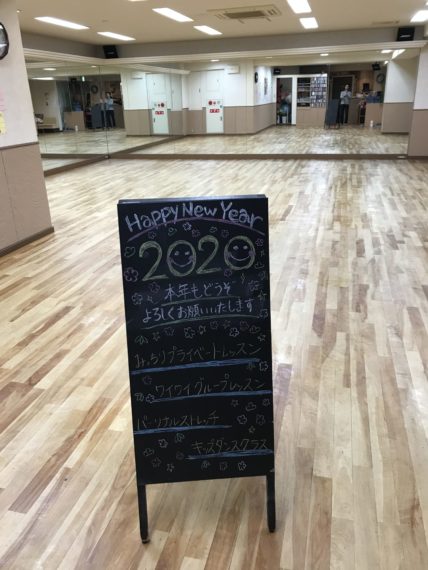 Happy New Year
2020
本年もどうぞ
よろしくお願いいたします
みっちりプライベートレッスン
ワイワイグループレッスン
パーソナルストレッチ
キッズダンスクラス